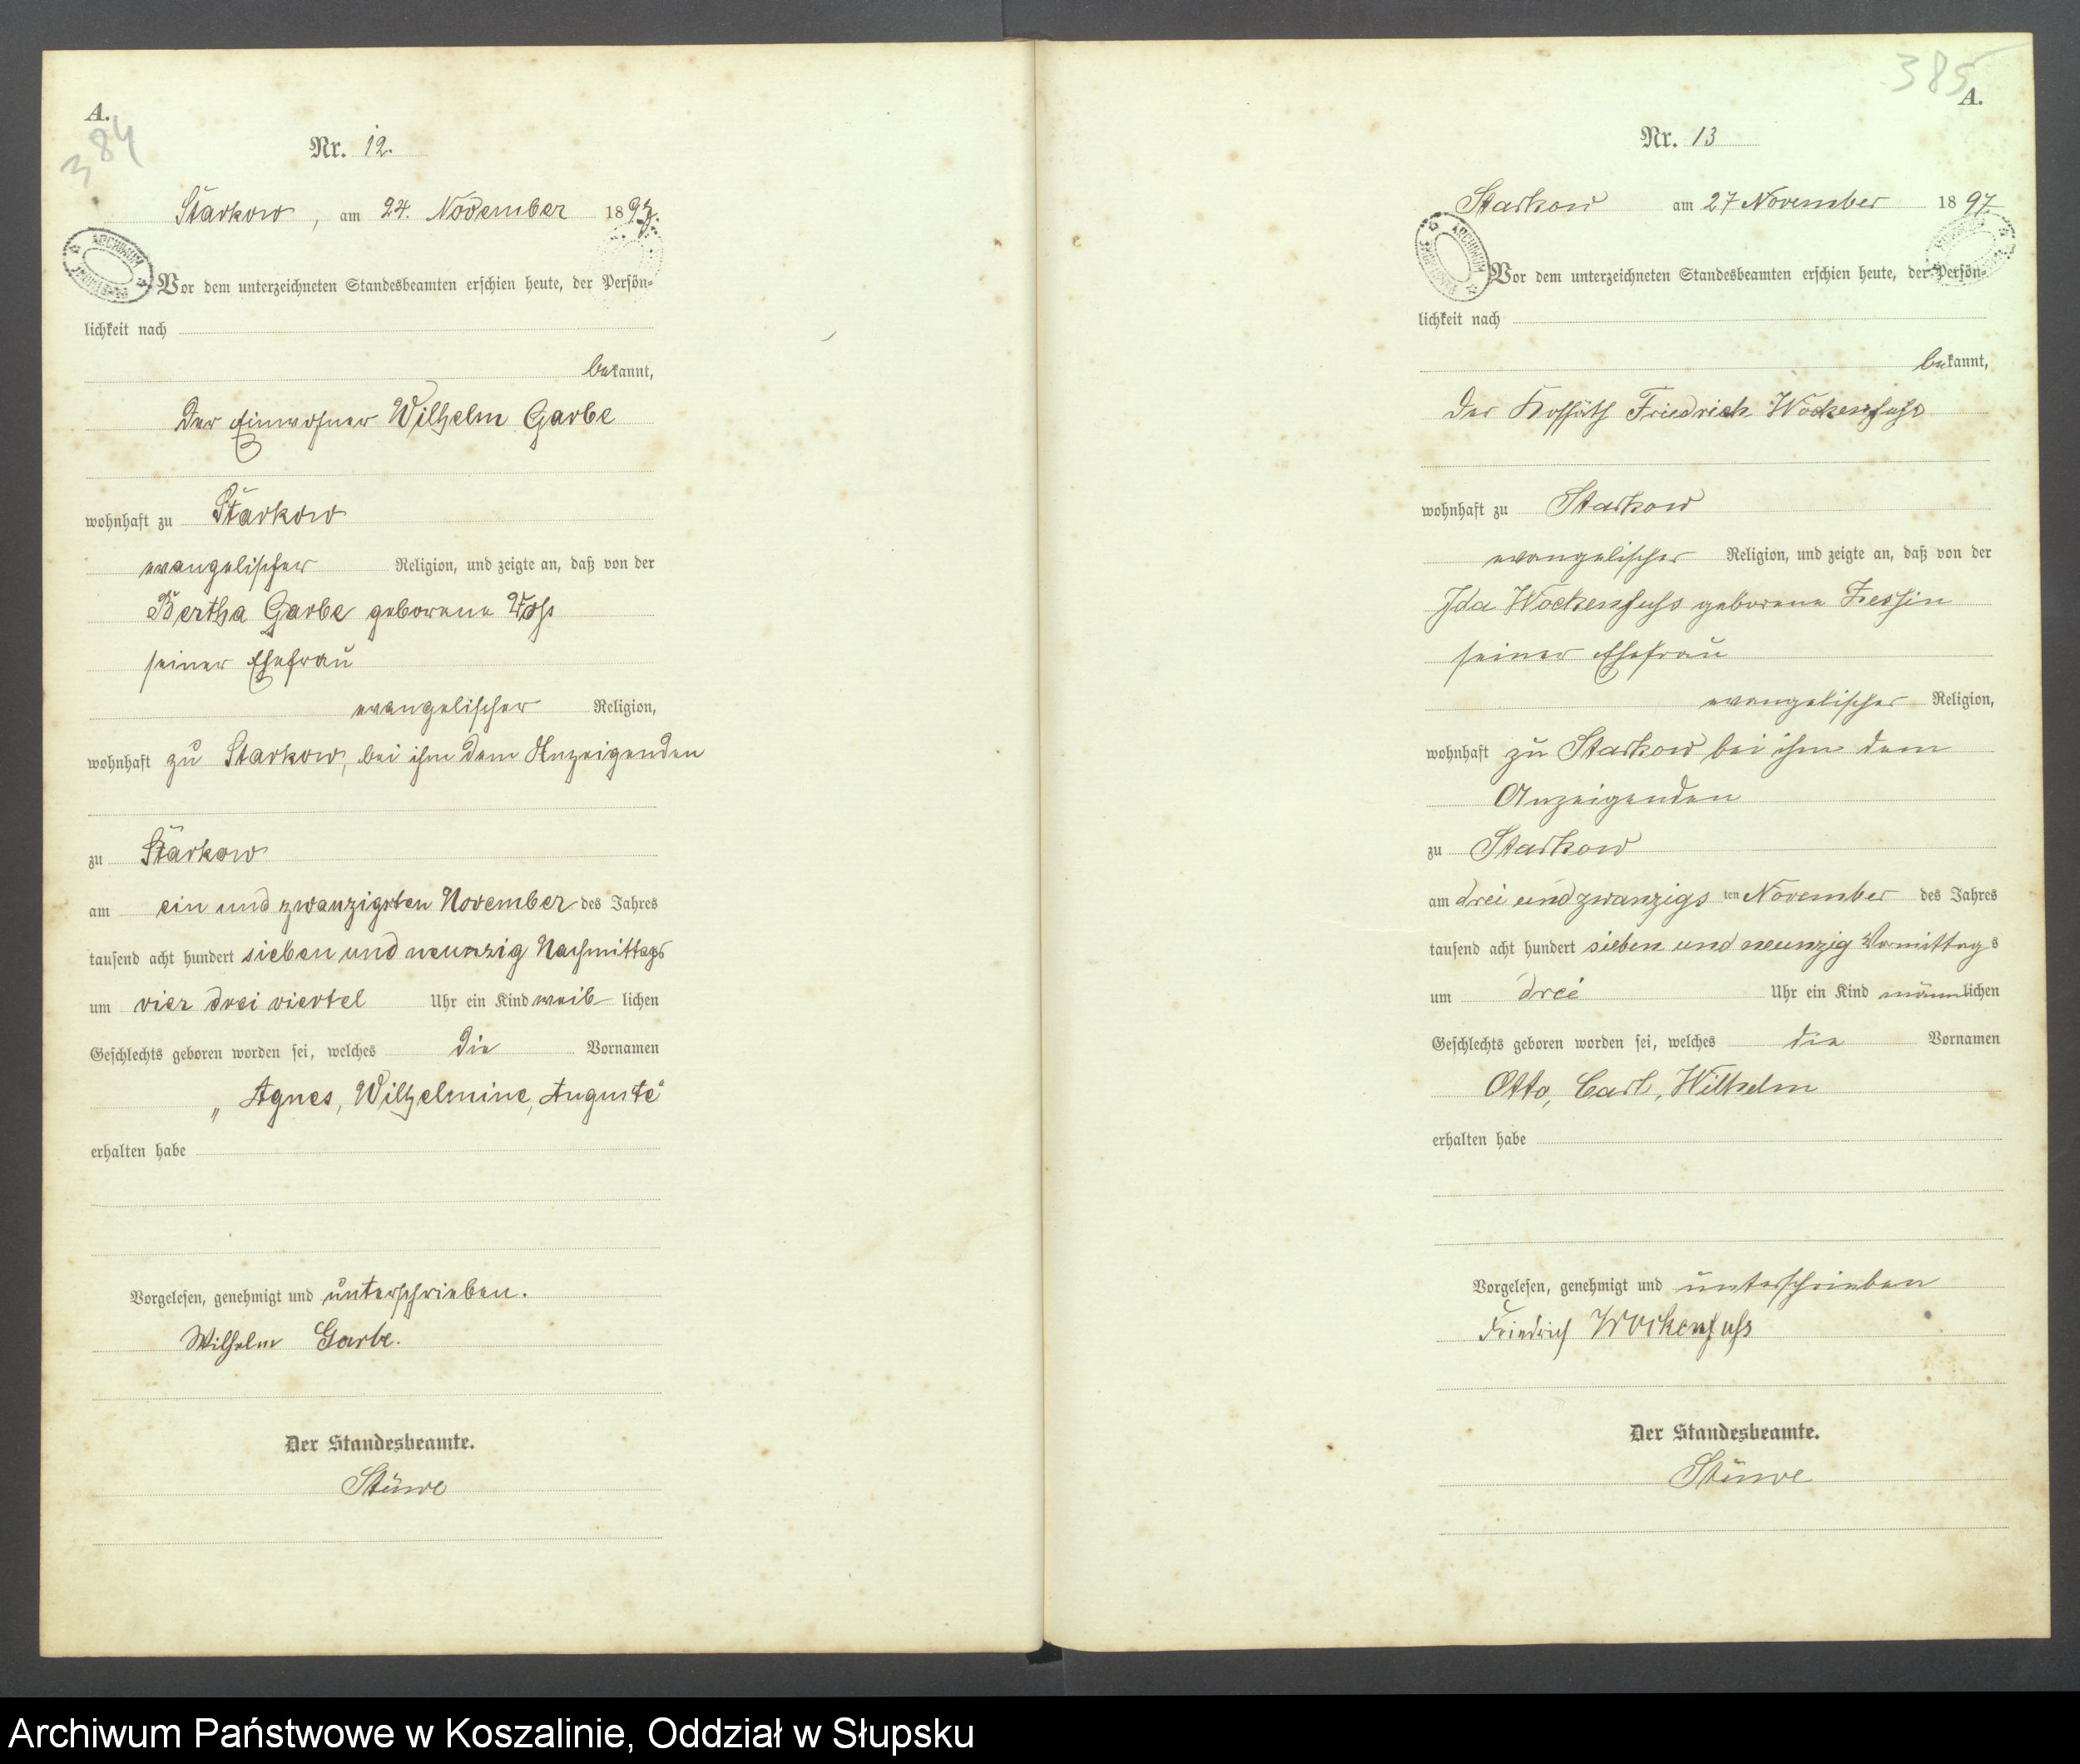 A.
384
Nr. 12.
Starkow, am 24. November 1897.
ARCHIWUM
Vor dem unterzeichneten Standesbeamten erschien heute, der Persön-
lichkeit nach
bekannt,
der Einwohner Wilhelm Garbe
wohnhaft zu Starkow
evangelischer Religion, und zeigte an, daß von der
Bertha Garbe geborene Voß
seiner Ehefrau
evangelischer Religion,
wohnhaft zu Starkow, bei ihm dem Anzeigenden
zu Starkow
am ein und zwanzigsten November des Jahres
tausend acht hundert sieben und neunzig Nachmittags
um vier drei viertel Uhr ein Kind weiblichen
Geschlechts geboren worden sei, welches die Vornamen
„Agnes, Wilhelmine, Auguste“
erhalten habe
Vorgelesen, genehmigt und unterschrieben.
Wilhelm Garbe.
Der Standesbeamte.
Stüwe
385
A.
Nr. 13
Starkow am 27 November 1897.
ARCHIWUM
Vor dem unterzeichneten Standesbeamten erschien heute, der Persön-
lichkeit nach
bekannt,
der Kossäth Friedrich Wockenfuss
wohnhaft zu Starkow
evangelischer Religion, und zeigte an, daß von der
Ida Wockenfuss geborene Zessin
seiner Ehefrau
evangelischer Religion,
wohnhaft zu Starkow bei ihm dem
Anzeigenden
zu Starkow
am drei und zwanzigsten November des Jahres
tausend acht hundert sieben und neunzig Vormittags
um drei Uhr ein Kind männlichen
Geschlechts geboren worden sei, welches die Vornamen
Otto, Carl, Wilhelm
erhalten habe
Vorgelesen, genehmigt und unterschrieben
Friedrich Wockenfuss
Der Standesbeamte.
Stüwe
Archiwum Państwowe w Koszalinie, Oddział w Słupsku